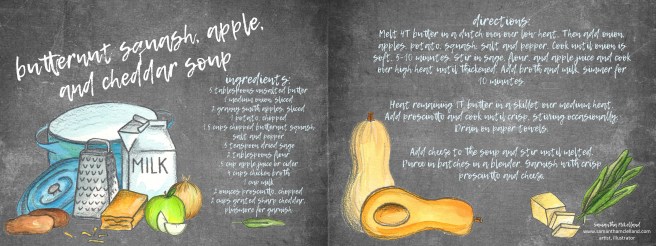 butternut squash, apple,
and cheddar soup
MILK
ingredients:
5 tablespoons unsalted butter
1 medium onion, sliced
2 granny smith apples, sliced
1 potato, chopped
1.5 cups chopped butternut squash
salt and pepper
1 teaspoon dried sage
2 tablespoons flour
.5 cup apple juice or cider
4 cups chicken broth
1 cup milk
2 ounces prosciutto, chopped
2 cups grated sharp cheddar,
plus more for garnish
directions:
Melt 4T butter in a dutch oven over low heat. Then add onion,
apples, potato, squash, salt and pepper. Cook until onion is
soft, 5-10 minutes. Stir in sage, flour, and apple juice and cook
over high heat until thickened. Add broth and milk, simmer for
10 minutes.
Heat remaining 1T butter in a skillet over medium heat.
Add prosciutto and cook until crisp, stirring occasionally.
Drain on paper towels.
Add cheese to the soup and stir until melted.
Puree in batches in a blender. Garnish with crisp
prosciutto and cheese.
www.samanthamclelland.com
artist, illustrator